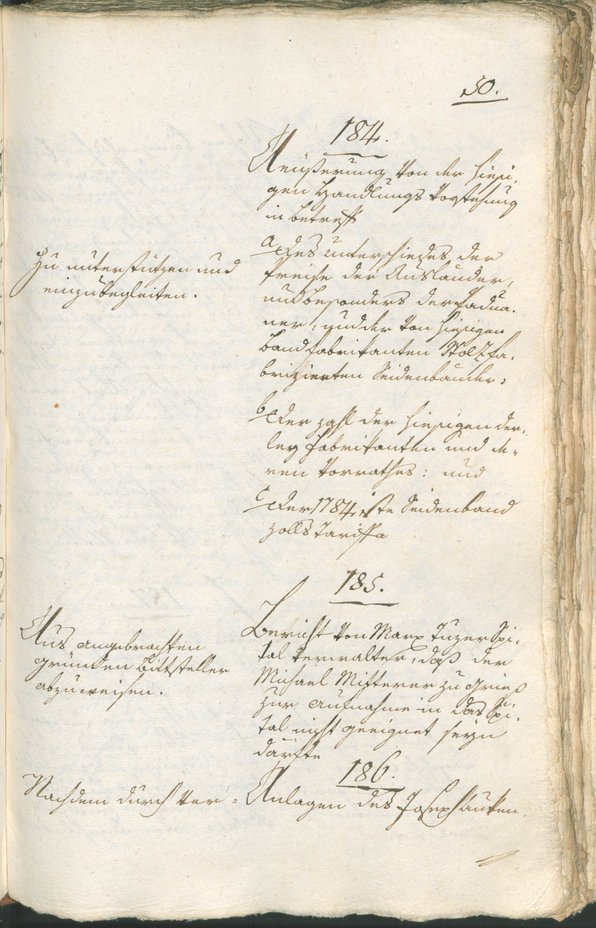 50.
184.
Aeüßerung von der hiesi-
gen Handlungs Vorstehung
in betreff
a) des unterschiedes der
Preise der Ausländer,
und besonders der Padua-
ner, und der von hiesigen
Bandfabrikanten Stolz fa-
brizierten Seidenbänder:
b) der Zahl der hiesigen der-
ley Fabrikanten und de-
ren Vorrathes: und
c) der 1784 iste Seidenband
zolls Tariffa
Zu unterstützen und
einzubegleiten.
185.
Bericht von Marx Tuzer Spi-
tal Verwalter, daß der
Michael Mitterer zu Gries
zur Aufnahme in das Spi-
tal nicht geeignet seyn
dürfte
Aus angebrachten
gründen Bittsteller
abzuweisen.
186.
Anlagen des Joseph Lauken
Nachdem durch ver-